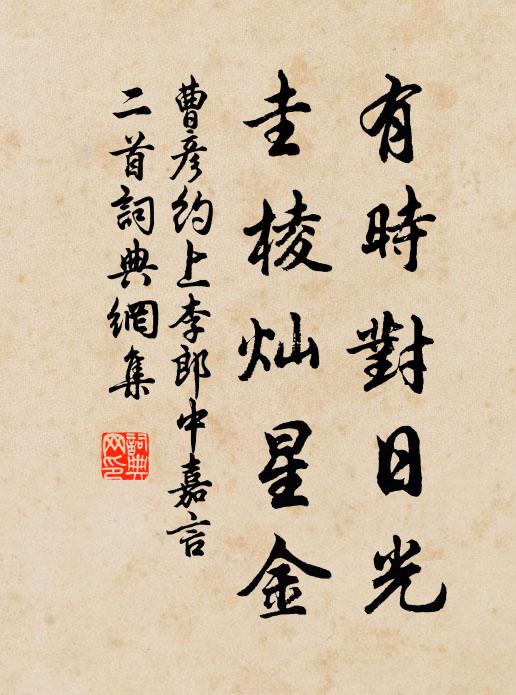 有時對日光
圭棱灿星金
曹彦約上李郎中嘉言
二首詞典網集
詞典网印